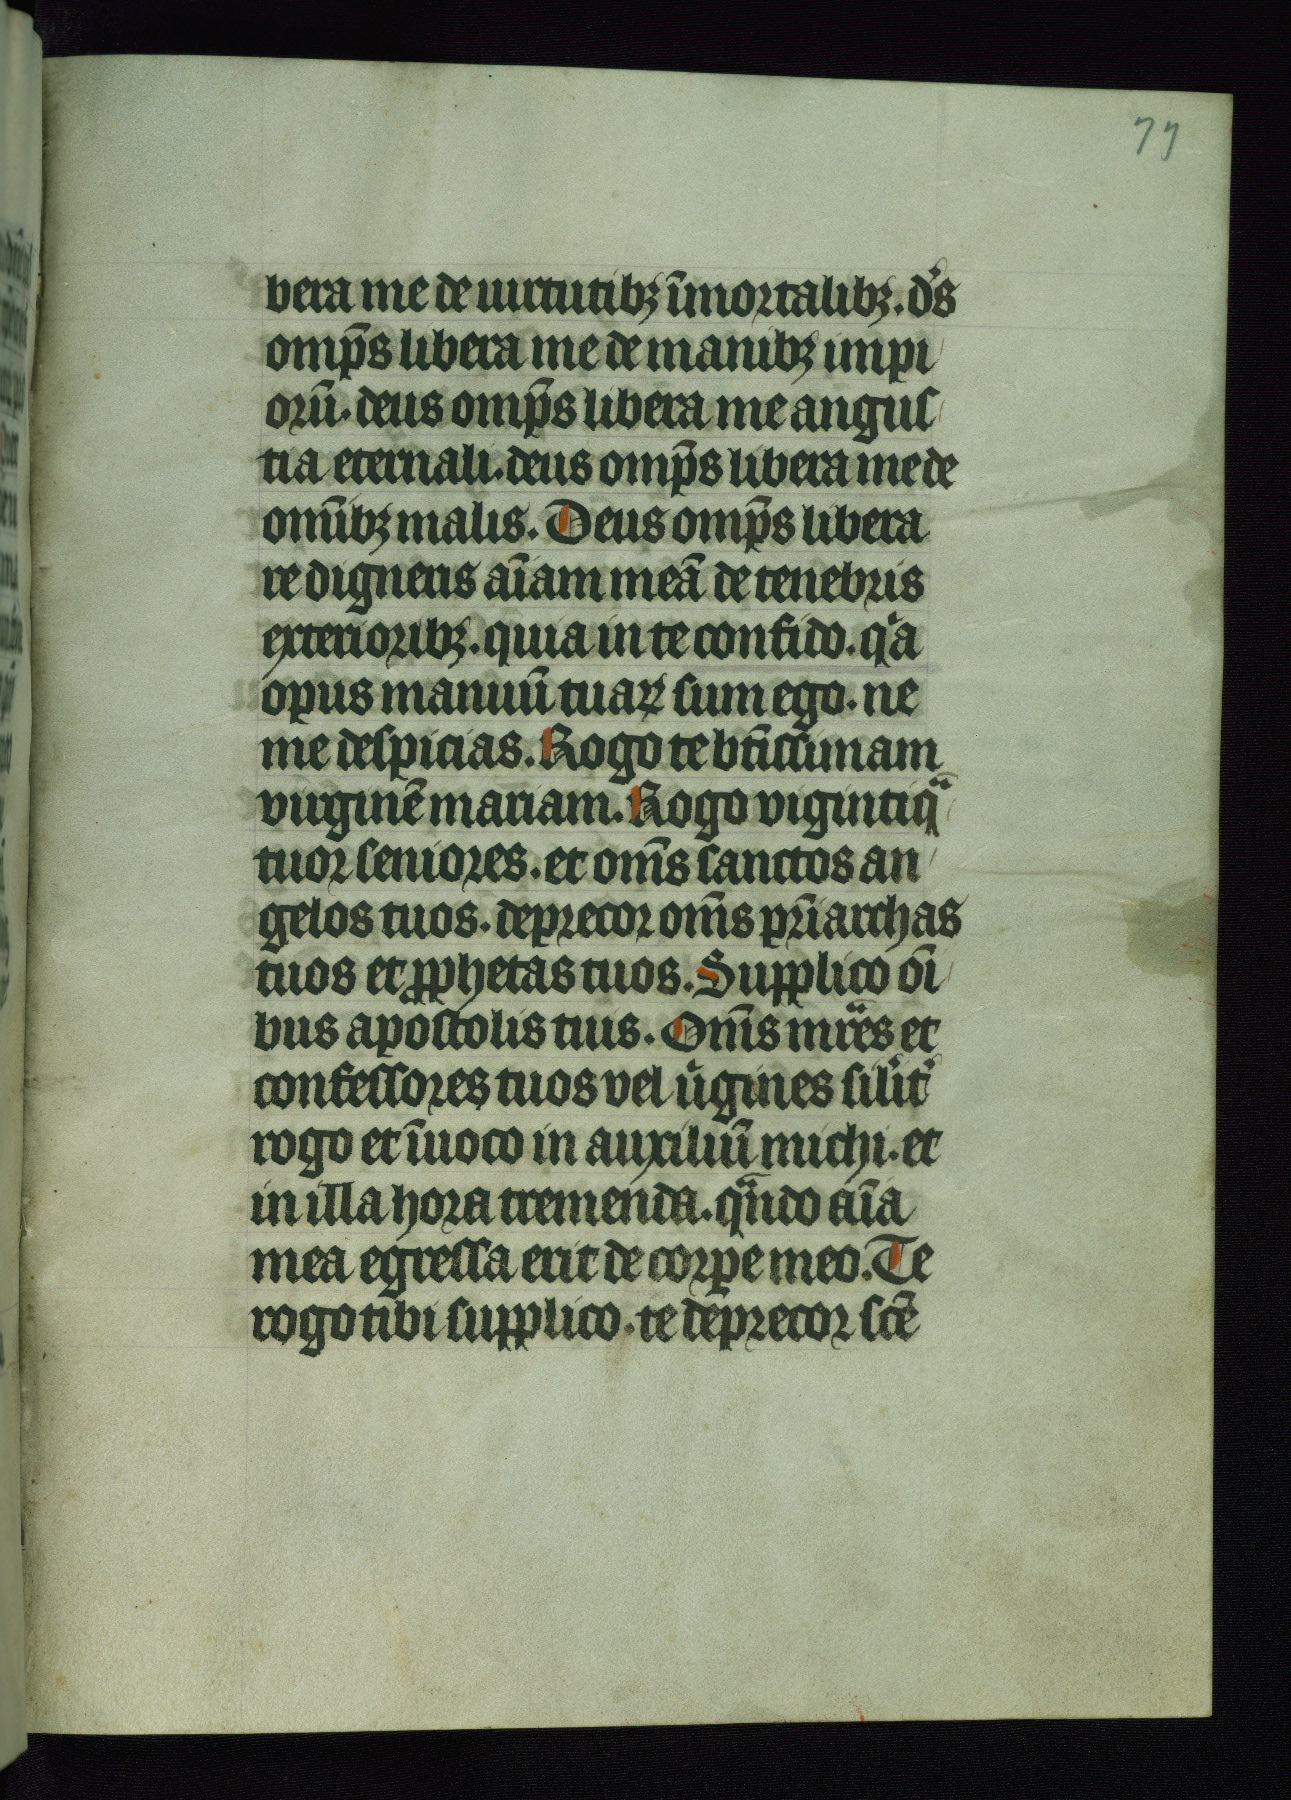 79
bera me de uirtutibꝫ īmortalibꝫ. d's
omp̄s libera me de manibꝫ impi
orū. deus omp̄s libera me angus
tia eternali. deus omp̄s libera me de
omībꝫ malis. Deus omp̄s libera
re digneris aīam meā de tenebris
exterioribꝫ. quia in te confido. qͥa
opus manuū tuaꝝ sum ego. ne
me despicias. Rogo te btīssimam
virginē mariam. Rogo vigintiqᷓ
tuor seniores. et om̄s sanctos an
gelos tuos. deprecor om̄s pr̄iarchas
tuos et ꝓphetas tuos. Supplico oī
bus apostolis tuis. Om̄s mr̄es et
confessores tuos vel u̓gines sil'it'
rogo et īuoco in auxiliū michi. et
in illa hora tremenda. qᷓndo aīa
mea egressa erit de corꝑe meo. Te
rogo tibi supplico. te deprecor sc̄e